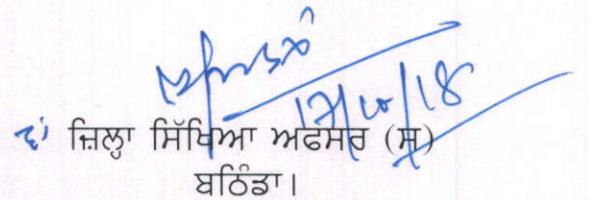 17/10/18
ਵਾਂ ਜ਼ਿਲ੍ਹਾ ਸਿੱਖਿਆ ਅਫਸਰ (ਸ)
ਬਠਿੰਡਾ।